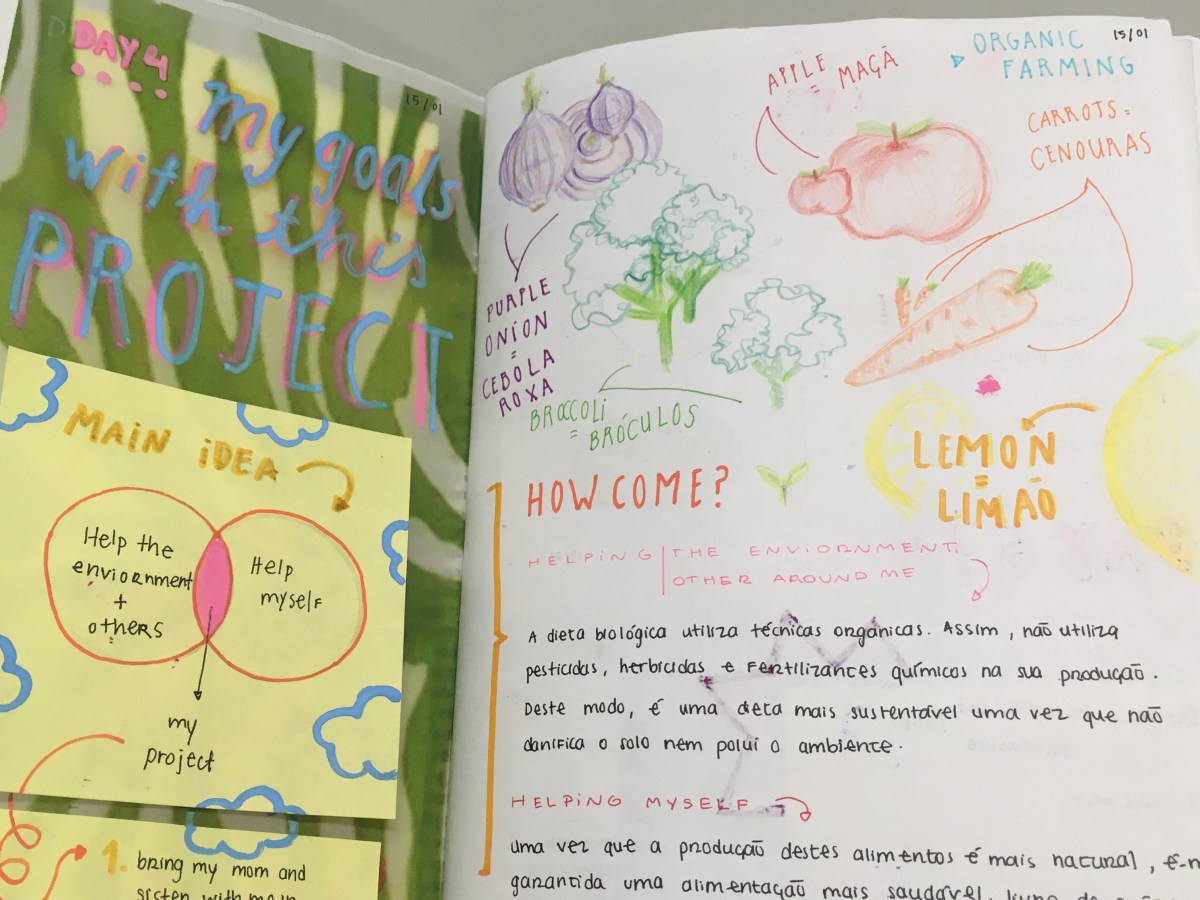 DAY 4
15/01
my goals
with this
PROJECT
MAIN IDEA
Help the
enviornment
+
others
Help
myself
my
project
1. bring my mom and
sister with me in
15/01
ORGANIC
FARMING
APPLE
=
MAÇÃ
CARROTS =
CENOURAS
PURPLE
ONION
=
CEBOLA
ROXA
BROCCOLI
=
BRÓCULOS
LEMON
=
LIMÃO
HOW COME?
HELPING THE ENVIORNMENT
OTHER AROUND ME
A dieta biológica utiliza técnicas orgânicas. Assim, não utiliza
pesticidas, herbicidas e fertilizantes químicos na sua produção.
Deste modo, é uma dieta mais sustentável uma vez que não
danifica o solo nem polui o ambiente.
HELPING MYSELF
uma vez que a produção destes alimentos é mais natural, é-n
garantida uma alimentação mais saudável, livre de